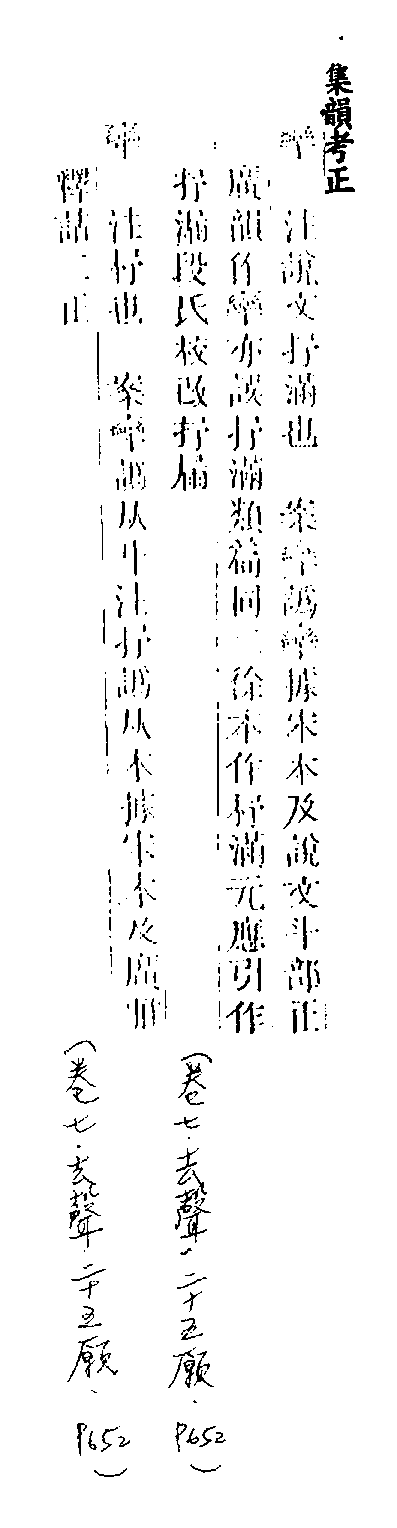 集韻考正
注說文抒滿也 案譌據宋本及說文斗部正
廣韻作亦抒滿類篇同二徐本作杼滿元應引作
抒漏段氏校改抒屚
注抒也 案譌从牛注抒譌从木據宋本及廣雅
釋詁二正
(卷七·去聲·二十五願·P652)
(卷七·去聲·二十五願·P652)